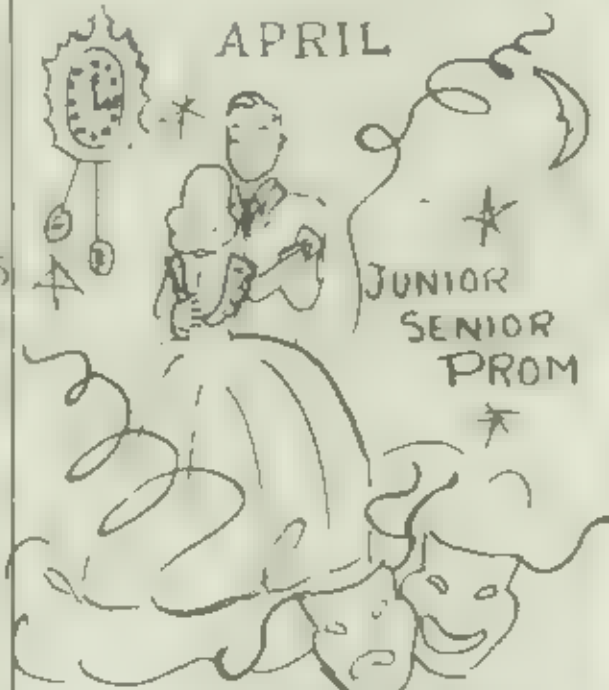 APRIL
JUNIOR
SENIOR
PROM